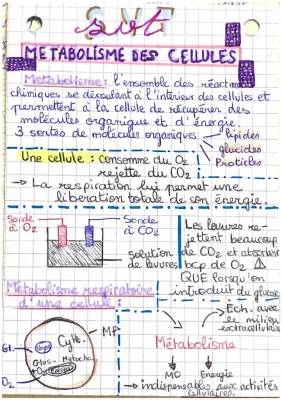 SVT
METABOLISME DES CELLULES
Metabolisme : l'ensemble des réactions
chimiques se déroulant à l'intérieur des cellules et
permettent à la cellule de récupérer des
molécules organique et d'énergie.
3 sortes de molécules organiques
lipides
glucides
Proticles
Une cellule : consomme du O2
rejette du CO2
→ La respiration lui permet une
liberation totale de son énergie.
Sonde
à O2
Sonde
à CO2
solution
de levures
Les levures re-
jettent beaucoup
de CO2 et absorbent
bcp de O2 ⚠
QUE lorsqu'on
introduit du glucose
Métabolisme respiratoire
d'une cellule :
Cyto.
MP
Gluc.
Mitoch.
O2
→ Ech. avec
le milieu
extracellulaire
Métabolisme
MO
Energie
→ indispensables aux activités
cellulaires.